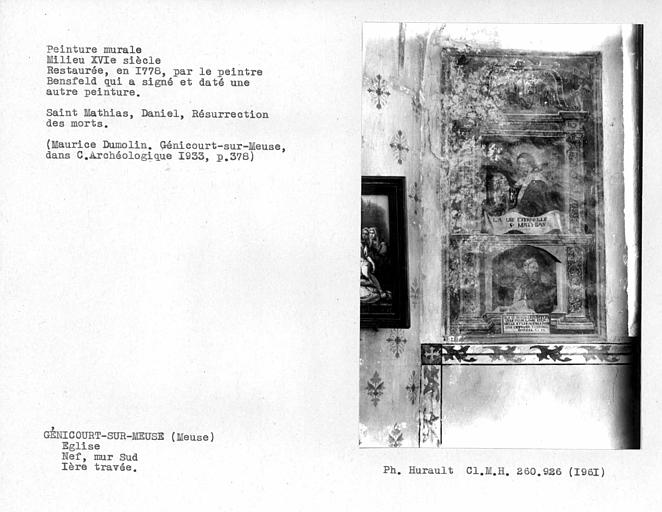 Peinture murale
Milieu XVIe siècle
Restaurée, en I778, par le peintre
Bensfeld qui a signé et daté une
autre peinture.
Saint Mathias, Daniel, Résurrection
des morts.
(Maurice Dumolin. Génicourt-sur-Meuse,
dans C.Archéologique I933, p.378)
LA VIE ETERNELLE
S. MATHIAS
GÉNICOURT-SUR-MEUSE (Meuse)
Eglise
Nef, mur Sud
Ière travée.
Ph. Hurault Cl.M.H. 260.926 (I96I)